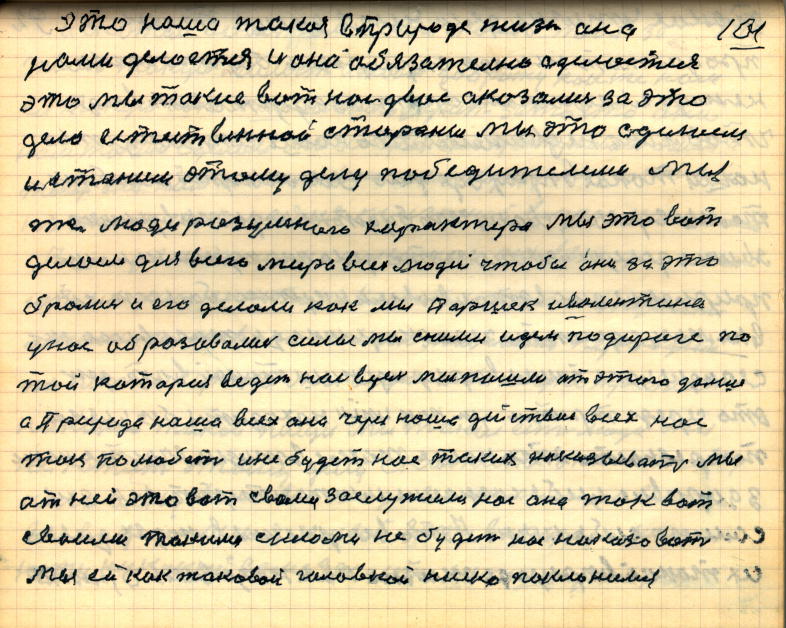 это наша такая в природе жизнь ана 131
нами делается и она обязательно сделается
это мы такие вот нас двое аказались за это
дело естественной стораны мы это сделаем
и станем этому делу победителеми мы
же люди разумного характера мы это вот
делаем для всего мира всех людей чтобы ани за это
брались и его делали как мы Паршек ивалентина
унас образовались силы мы сними идем подороге по
той которая ведет нас всех мы пошли от этого дальше
а Природа наша всех ана через наша действие всех нас
так полюбеть ине будет нас таких наказывать мы
ат ней это вот свами заслужили нас ана так вот
своими такими силами не будет нас наказовать
мы ей как таковой головкой низко поклонились